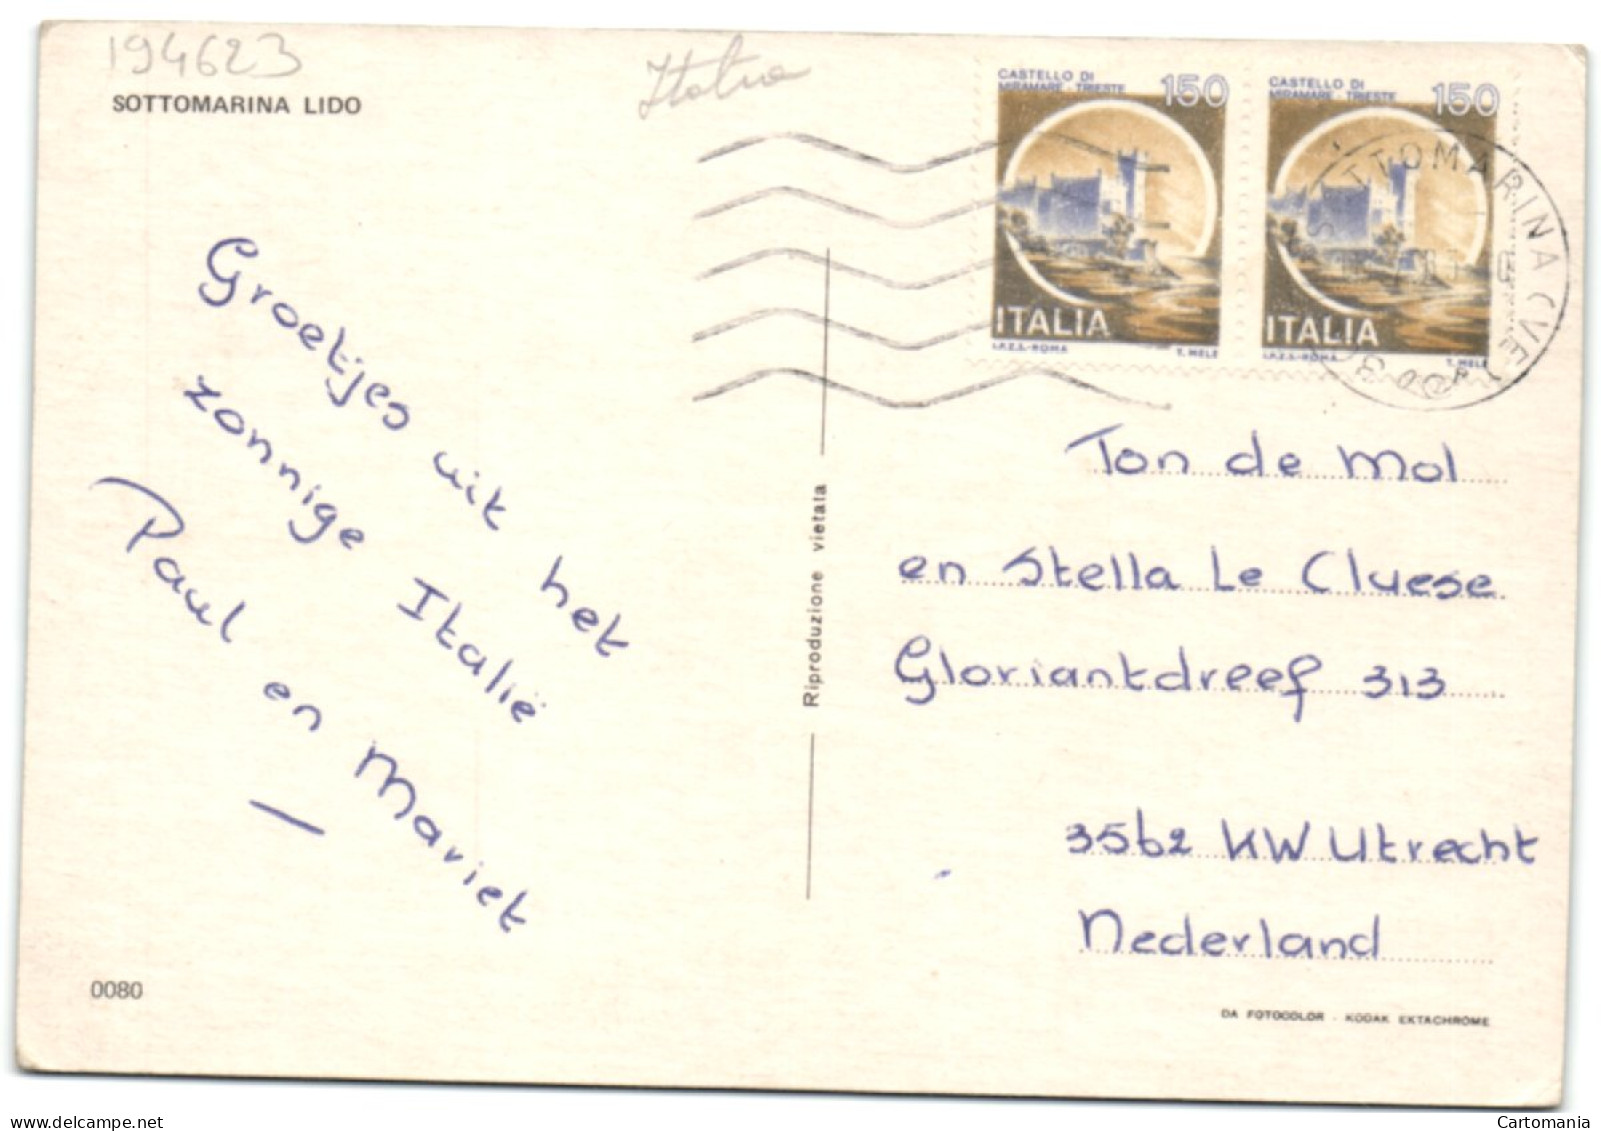 194623
SOTTOMARINA LIDO
CASTELLO DI
MIRAMARE - TRIESTE
150
ITALIA
I.P.Z.S.-ROMA
T. MELE
CASTELLO DI
MIRAMARE - TRIESTE
150
ITALIA
I.P.Z.S.-ROMA
T. MELE
SOTTOMARINA (VE)
Groetjes uit het
zonnige Italië
Paul en Mariet
Riproduzione vietata
Ton de Mol
en Stella Le Cluese
Gloriantdreef 313
3562 KW Utrecht
Nederland
0080
DA FOTOCOLOR - KODAK EKTACHROME
www.delcampe.net
Cartomania